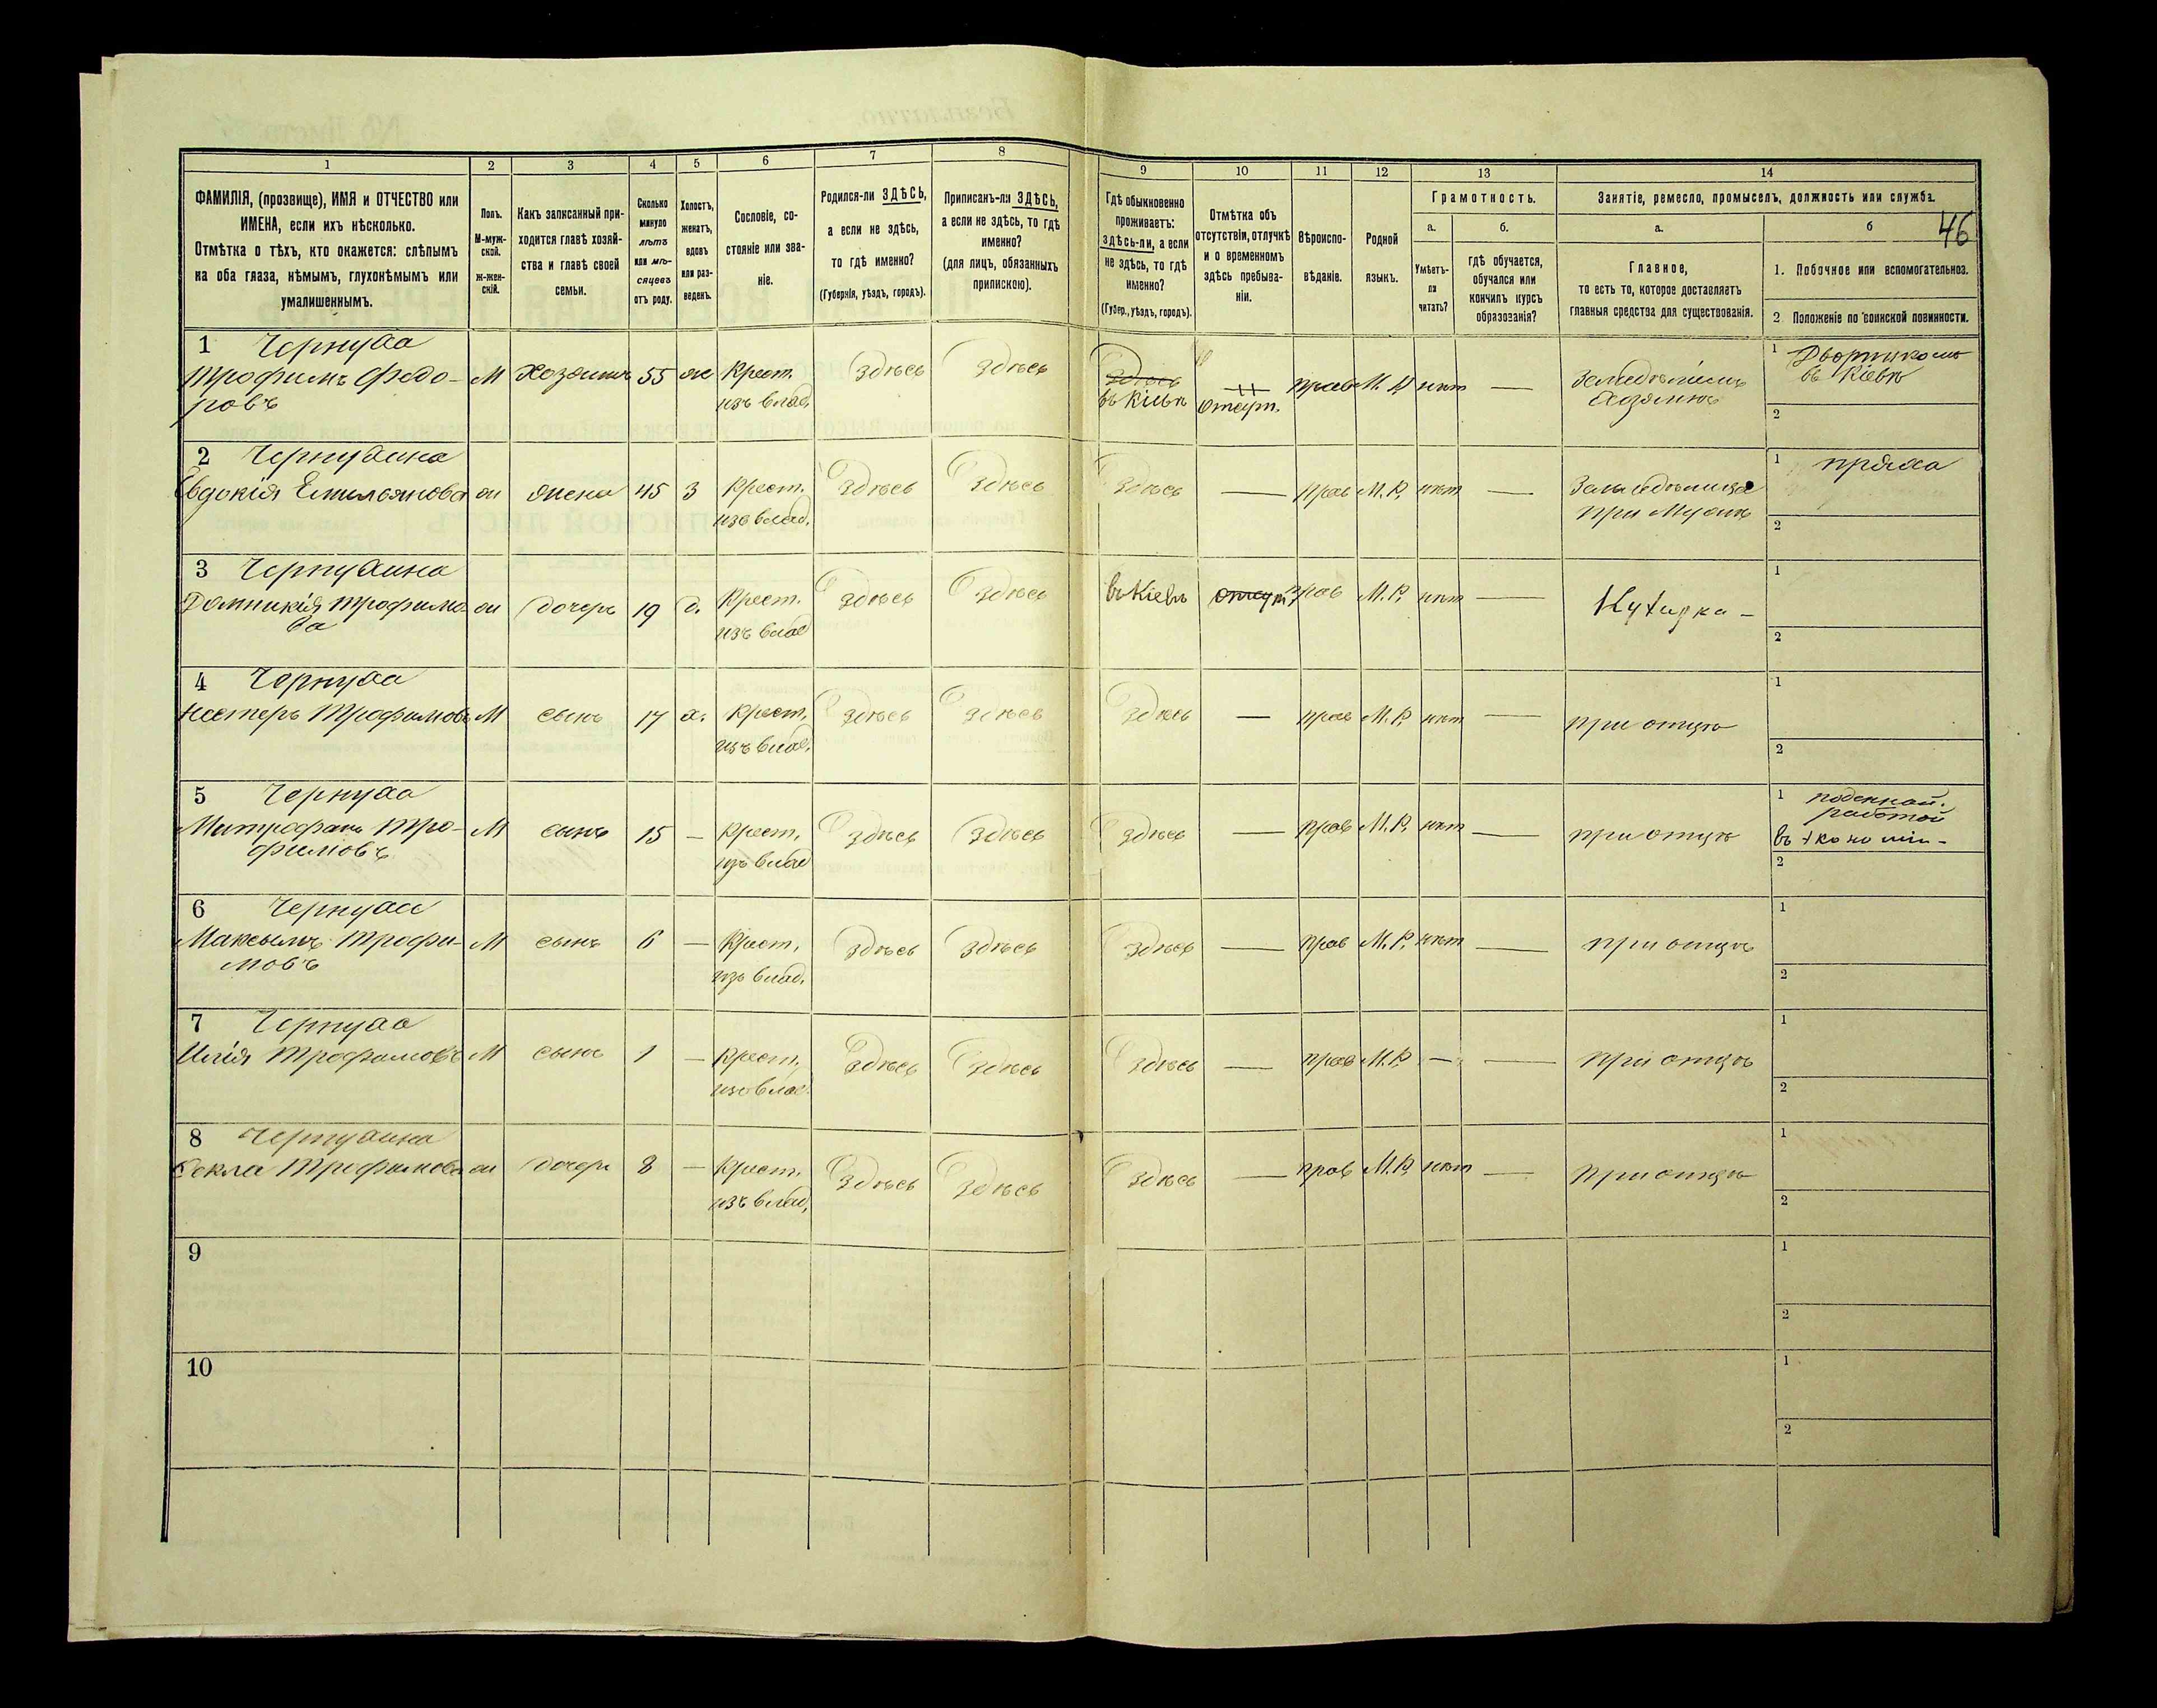 1 2 3 4 5 6 7 8 9 10 11 12 13 14
ФАМИЛІЯ, (прозвище), ИМЯ и ОТЧЕСТВО или
ИМЕНА, если ихъ нѣсколько.
Отмѣтка о тѣхъ, кто окажется: слѣпымъ
на оба глаза, нѣмымъ, глухонѣмымъ или
умалишеннымъ.
Полъ.
М-муж-
ской.
ж-жен-
скій.
Какъ записанный при-
ходится главѣ хозяй-
ства и главѣ своей
семьи.
Сколько
минуло
лѣтъ
или мѣ-
сяцевъ
отъ роду.
Холостъ,
женатъ,
вдовъ
или раз-
веденъ.
Сословіе, со-
стояніе или зва-
ніе.
Родился-ли ЗДѢСЬ,
а если не здѣсь,
то гдѣ именно?
(Губернія, уѣздъ, городъ).
Приписанъ-ли ЗДѢСЬ,
а если не здѣсь, то гдѣ
именно?
(для лицъ, обязанныхъ
припискою).
Гдѣ обыкновенно
проживаетъ:
здѣсь-ли, а если
не здѣсь, то гдѣ
именно?
(Губер., уѣздъ, городъ).
Отмѣтка объ
отсутствіи, отлучкѣ
и о временномъ
здѣсь пребыва-
ніи.
Вѣроиспо-
вѣданіе.
Родной
языкъ.
Грамотность.
а.
Умѣетъ-
ли
читать?
б.
гдѣ обучается,
обучался или
кончилъ курсъ
образованія?
Занятіе, ремесло, промыселъ, должность или служба.
46
а.
Главное,
то есть то, которое доставляетъ
главныя средства для существованія.
б
1. Побочное или вспомогательное.
2 Положеніе по воинской повинности.
1 Чернуха
Трофимъ Федо-
ровъ
М Хозяинъ 55 ж Крест.
изъ влад.
Здѣсь Здѣсь Здѣсь
въ Кіевѣ
отсут.
прав М. Р. нѣт —
Земледѣлецъ
Хозяинъ
1 Дворникомъ
въ Кіевѣ
2
2 Чернухина
Евдокія Емильянова ж жена 45 З Крест.
изъ влад.
Здѣсь Здѣсь Здѣсь — прав М.Р. нѣт —
Земледѣлица
при Мужѣ
1 пряха
2
3 Чернухина
Домникія Трофимо
ва
ж дочерь 19 д. Крест.
изъ влад
Здѣсь Здѣсь въ Кіевѣ отсут. прав М.Р. нѣт —
1
2
4 Чернуха
Нестеръ Трофимовъ М сынъ 17 х. Крест.
изъ влад.
Здѣсь Здѣсь Здѣсь — прав М.Р. нѣт — при отцѣ
1
2
5 Чернуха
Митрофанъ Тро-
фимовъ
М сынъ 15 — Крест.
изъ влад
Здѣсь Здѣсь Здѣсь — прав М.Р. нѣт — при отцѣ
1 поденной.
работой
въ экономіи-
2
6 Чернуха
Максымъ Трофи-
мовъ
М сынъ 6 — Крест.
изъ влад.
Здѣсь Здѣсь Здѣсь — прав М.Р. нѣт — при отцѣ
1
2
7 Чернуха
Илія Трофимовъ М сынъ 1 — Крест.
изъ влад.
Здѣсь Здѣсь Здѣсь — прав М.Р. — — при отцѣ
1
2
8 Чернухина
Фекла Трофимова ж дочерь 8 — Крест.
изъ влад.
Здѣсь Здѣсь Здѣсь — прав М.Р. нѣт — при отцѣ
1
2
9
1
2
10
1
2